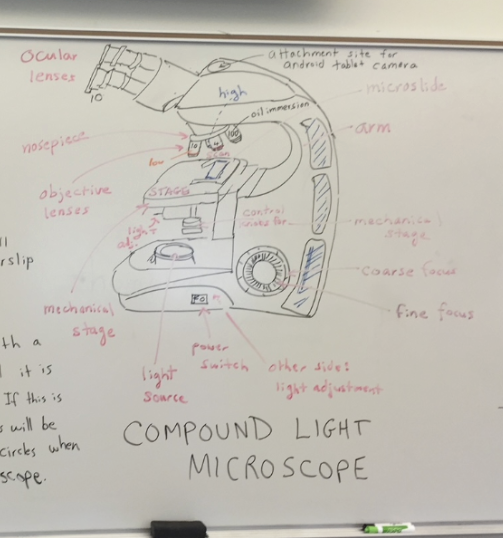 ocular
lenses
attachment site for
android tablet camera
10
high
microslide
oil immersion
arm
nosepiece
10
4
100
low
scan
objective
lenses
STAGE
control
knobs for
mechanical
stage
light
adj.
rslip
coarse focus
mechanical
stage
fine focus
th a
power
switch
it is
other side:
light adjustment
light
source
If this is
s will be
circles when
scope.
COMPOUND LIGHT
MICROSCOPE